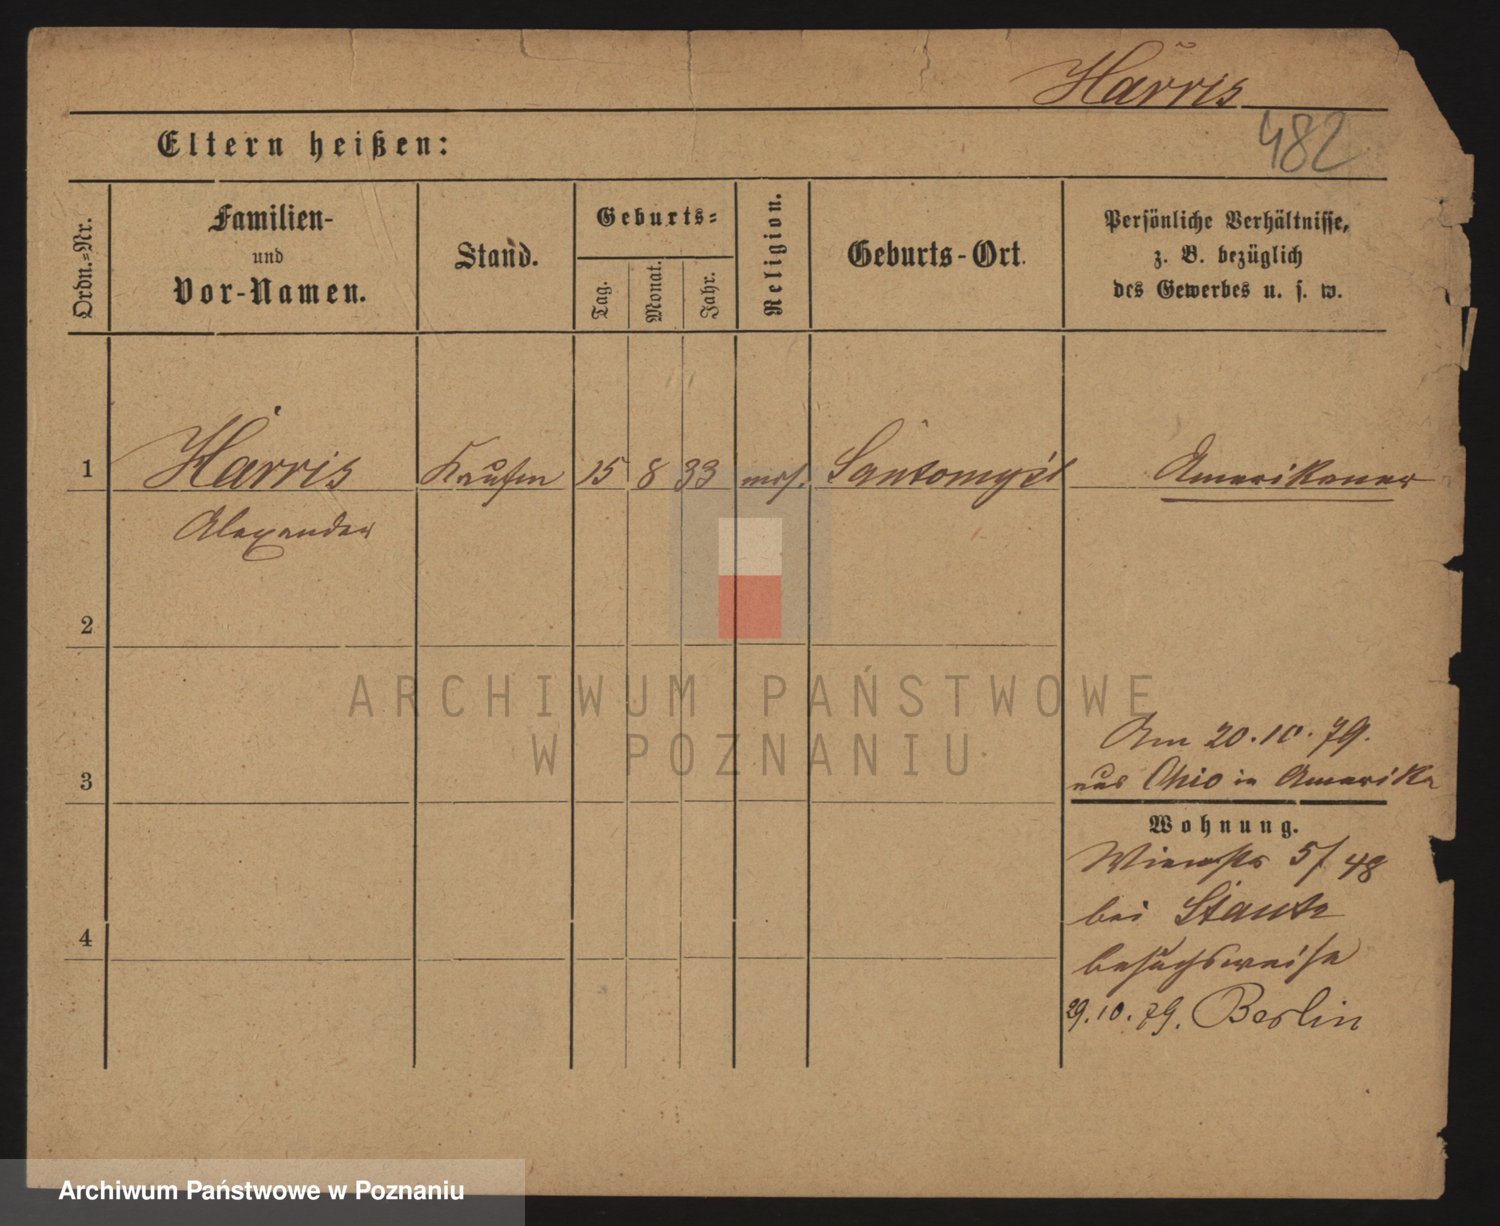 Harris
482
Eltern heißen:
Ordn.=Nr.
Familien-
und
Vor-Namen.
Stand.
Geburts=
Tag.
Monat.
Jahr.
Religion.
Geburts-Ort.
Persönliche Verhältnisse,
z. B. bezüglich
des Gewerbes u. s. w.
1
Harris
Kaufm
15
8
33
mos.
Santomysl
Amerikaner
Alexander
2
ARCHIWUM PAŃSTWOWE
W POZNANIU
3
Am 20.10.79.
aus Ohio in Amerika
Wohnung.
5/48
bei
besuchsweise
29.10.79. Berlin
4
Archiwum Państwowe w Poznaniu